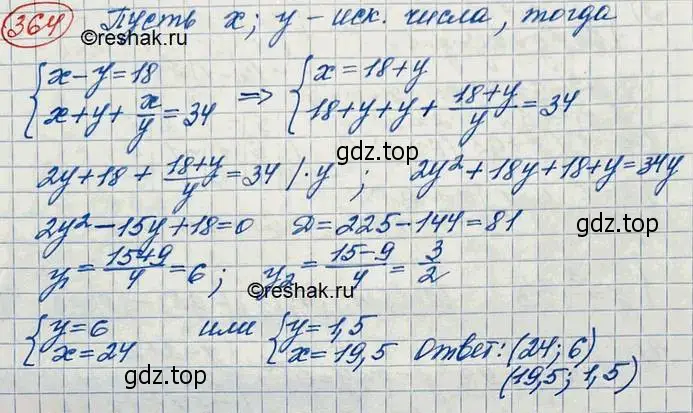 364 Пусть x; y - иск. числа, тогда
©reshak.ru
{x-y=18 => {x=18+y
{x+y+x/y=34 {18+y+y+(18+y)/y=34
gdz.top
2y+18+(18+y)/y=34 /·y ; 2y²+18y+18+y=34y
2y²-15y+18=0 D=225-144=81
gdz.top
y₁=(15+9)/4=6; y₂=(15-9)/4=3/2
©reshak.ru
{y=6 или {y=1,5
{x=24 {x=19,5 Ответ: (24; 6)
(19,5; 1,5)
gdz.top gdz.top